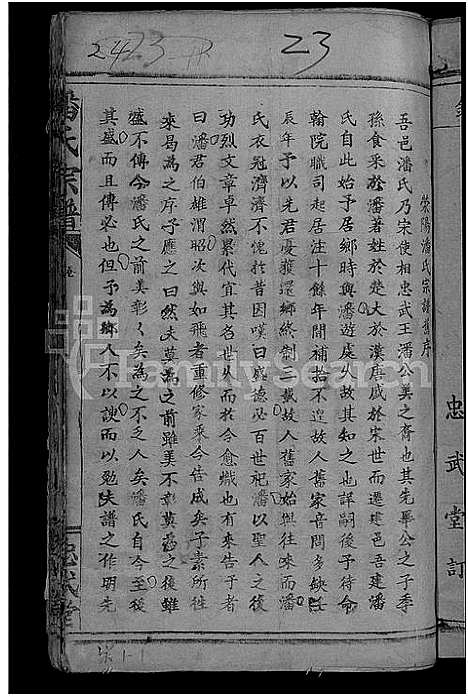 2423 23
滎陽潘氏宗譜舊序
吾邑潘氏乃宋使相忠武王潘公美之裔也其先畢公之子季
孫食采於潘著姓於楚大於漢唐盛於宋世而遷建邑吾建潘
氏自此始予居鄉時與潘遊處久故其知之也詳嗣後予待命
翰院職司起居注十餘年間補拾不遑故人舊家音問多缺
辰年予以先君憂獲還鄉終制三載故人舊家始與往來而潘
氏衣冠濟濟不愧於昔因嘆曰盛德必百世祀潘以聖人之後
功烈文章卓然累代宜其名世久而今愈熾也有來告于者
曰潘君伯雄渭昭次與如飛者重修家乘今告成矣子素所往
來曷為之序予應之曰然夫莫為之前雖美不彰莫為之後雖
盛不傳今潘氏之前美彰〻矣為之不乏人矣潘氏自今至後
其盛而且傳必也但予為鄉人不以諛而以勉夫譜之作明先
潘氏宗譜
忠武堂訂
FamilySearch